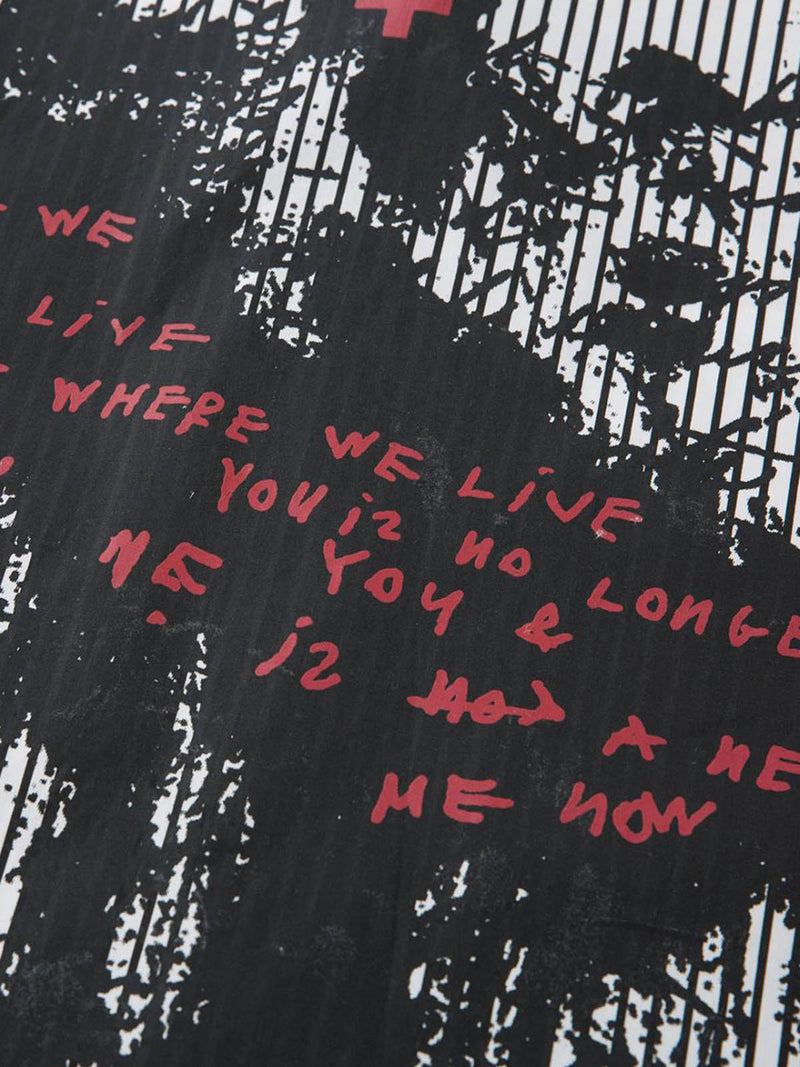 WE
LIVE
WHERE WE LIVE
YOU iz NO LONGE
ME YOU &
iz A ME
ME NOW